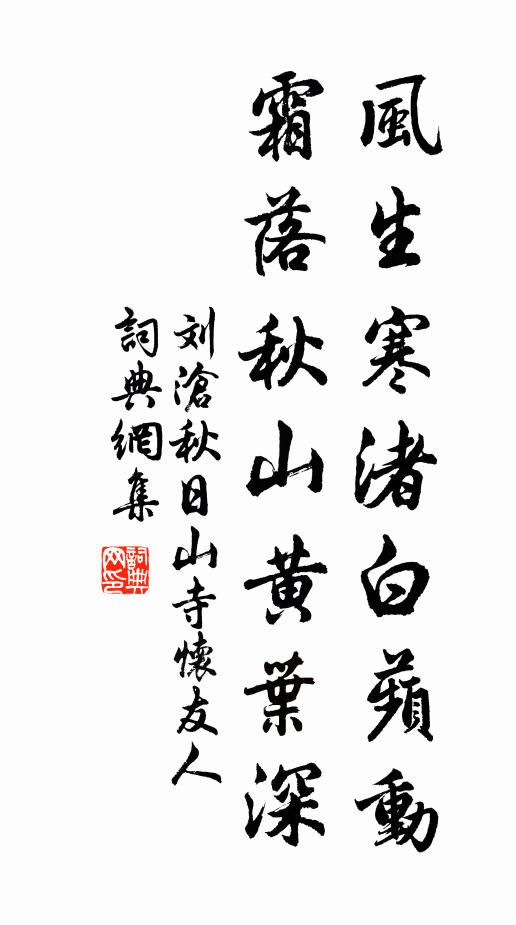 風生寒渚白蘋動
霜落秋山黃葉深
刘滄秋日山寺懷友人
詞典網集
詞典网印